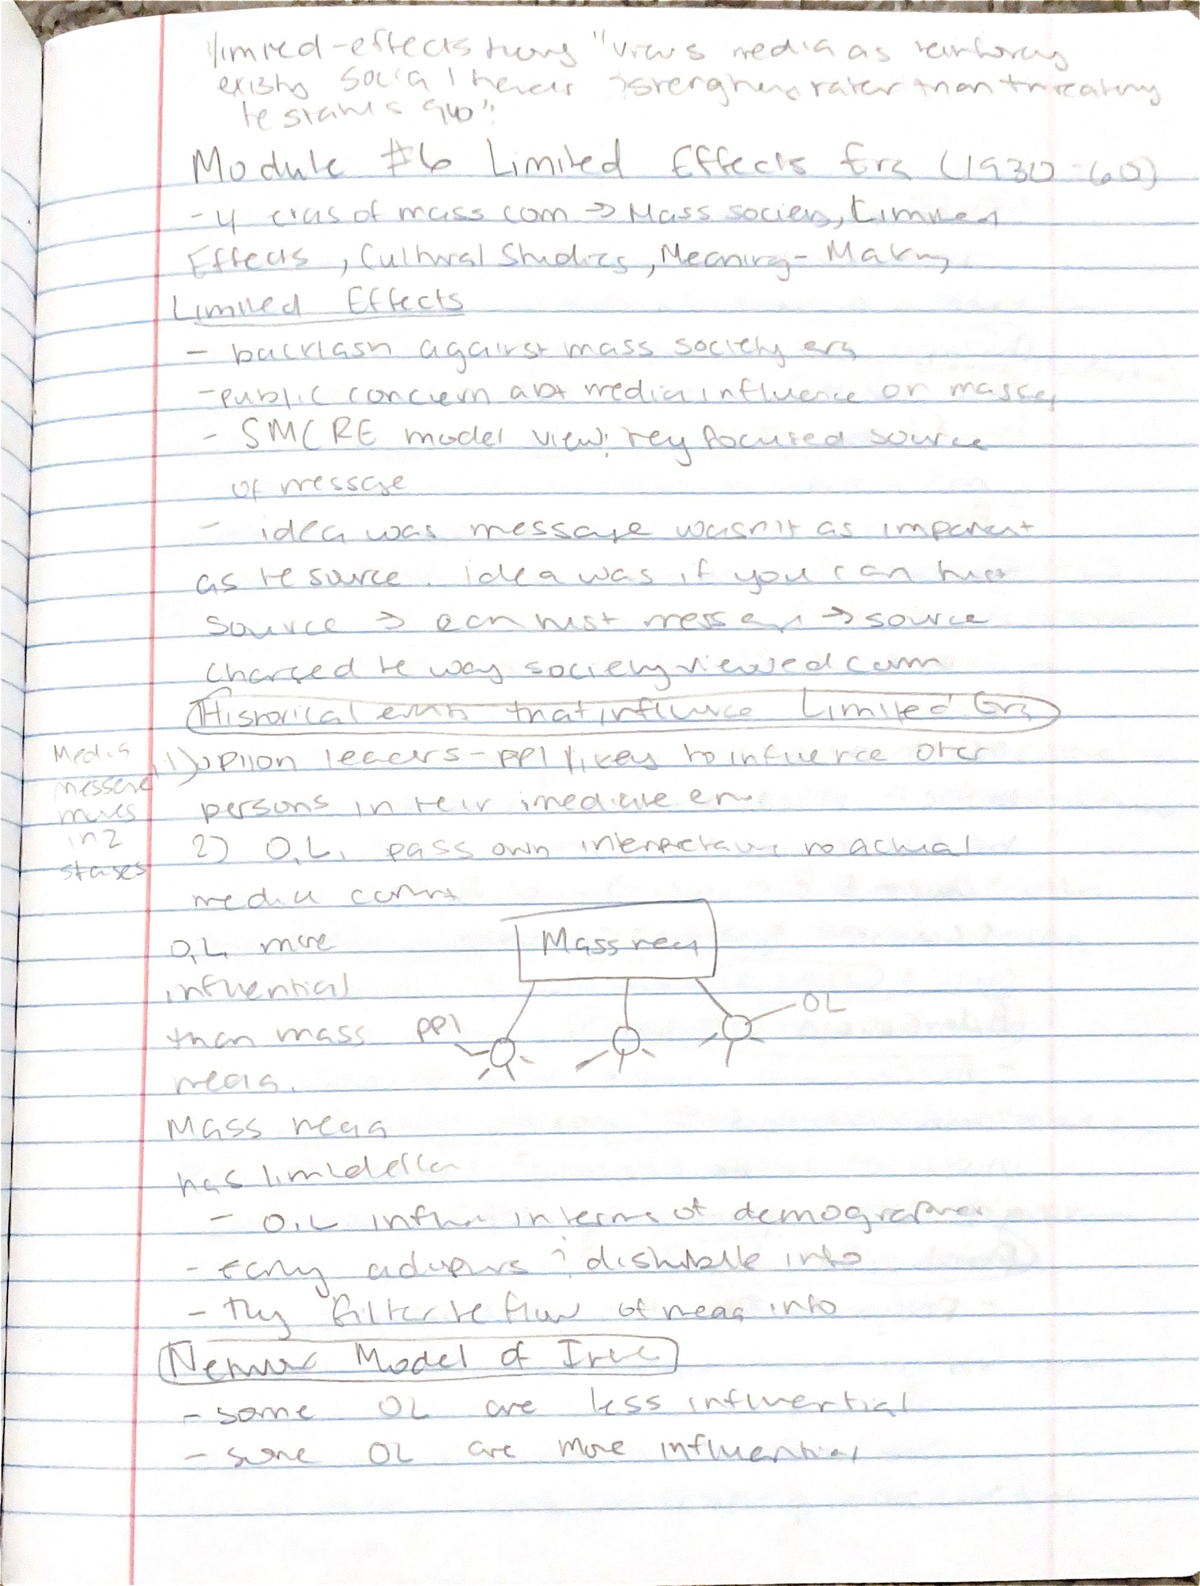 limited-effects theory "views media as reinforcing
existing social trends & strengthens rater than threatening
te status quo".
Module #6 Limited Effects Era (1930-60)
- 4 eras of mass com → Mass society, Limited
Effects, Cultural Studies, Meaning-Making
Limited Effects
- backlash against mass society era
- public concern abt media influence on masses
- SMCRE model view: tey focused source
of message
- idea was message wasn't as important
as te source. idea was if you can trust
source → can trust message → source
changed te way society viewed comm
Historical events that influence Limited Era
Media
message
moves
in 2
stages
1) opinion leaders - ppl likey to influence oter
persons in teir imediate env
2) O.L. pass own interpretations to actual
media content
Mass media
ppl
OL
O.L. more
influential
than mass
media.
Mass media
has limited effect
- O.L influ in terms of demographics
- early adopters & distribute info
- they filter te flow of media info
Model of
- some OL are less influential
- some OL are more influential